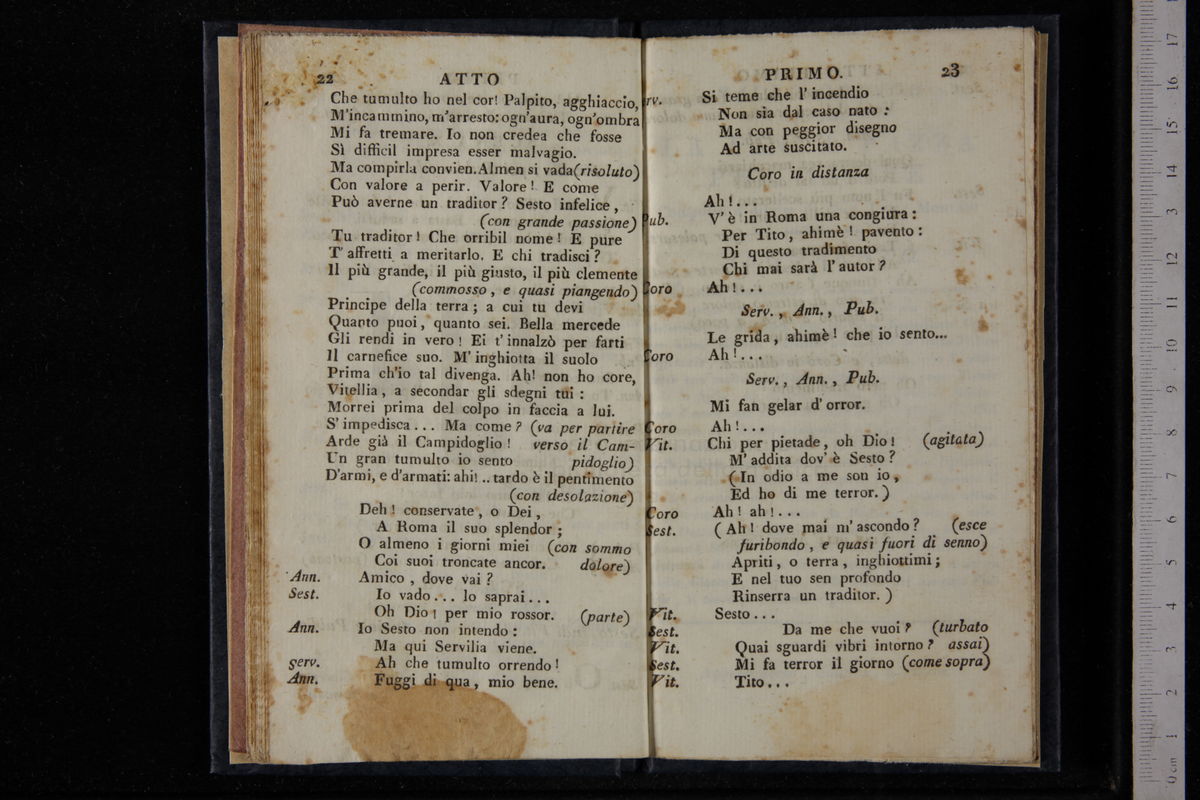 22 ATTO
Che tumulto ho nel cor! Palpito, agghiaccio,
M'incammino, m'arresto: ogn'aura, ogn'ombra
Mi fa tremare. Io non credea che fosse
Sì difficil impresa esser malvagio.
Ma compirla convien. Almen si vada (risoluto)
Con valore a perir. Valore! E come
Può averne un traditor? Sesto infelice,
(con grande passione)
Tu traditor! Che orribil nome! E pure
T'affretti a meritarlo. E chi tradisci?
Il più grande, il più giusto, il più clemente
(commosso, e quasi piangendo)
Principe della terra; a cui tu devi
Quanto puoi, quanto sei. Bella mercede
Gli rendi in vero! Ei t'innalzò per farti
Il carnefice suo. M'inghiotta il suolo
Prima ch'io tal divenga. Ah! non ho core,
Vitellia, a secondar gli sdegni tui:
Morrei prima del colpo in faccia a lui.
S'impedisca... Ma come? (va per partire
Arde già il Campidoglio! verso il Cam-
Un gran tumulto io sento pidoglio)
D'armi, e d'armati: ahi!.. tardo è il pentimento
(con desolazione)
Deh! conservate, o Dei,
A Roma il suo splendor;
O almeno i giorni miei (con sommo
Coi suoi troncate ancor. dolore)
Ann. Amico, dove vai?
Sest. Io vado... lo saprai...
Oh Dio! per mio rossor. (parte)
Ann. Io Sesto non intendo:
Ma qui Servilia viene.
Serv. Ah che tumulto orrendo!
Ann. Fuggi di qua, mio bene.
PRIMO. 23
rv. Si teme che l'incendio
Non sia dal caso nato:
Ma con peggior disegno
Ad arte suscitato.
Coro in distanza
Ah!...
Pub. V'è in Roma una congiura:
Per Tito, ahimè! pavento:
Di questo tradimento
Chi mai sarà l'autor?
Coro Ah!...
Serv., Ann., Pub.
Le grida, ahimè! che io sento...
Coro Ah!...
Serv., Ann., Pub.
Mi fan gelar d'orror.
Coro Ah!...
Vit. Chi per pietade, oh Dio! (agitata)
M'addita dov'è Sesto?
(In odio a me son io,
Ed ho di me terror.)
Coro Ah! ah!...
Sest. (Ah! dove mai m'ascondo? (esce
furibondo, e quasi fuori di senno)
Apriti, o terra, inghiottimi;
E nel tuo sen profondo
Rinserra un traditor.)
Vit. Sesto...
Sest. Da me che vuoi? (turbato
Vit. Quai sguardi vibri intorno? assai)
Sest. Mi fa terror il giorno (come sopra)
Vit. Tito...
0 cm 1 2 3 4 5 6 7 8 9 10 11 12 13 14 15 16 17